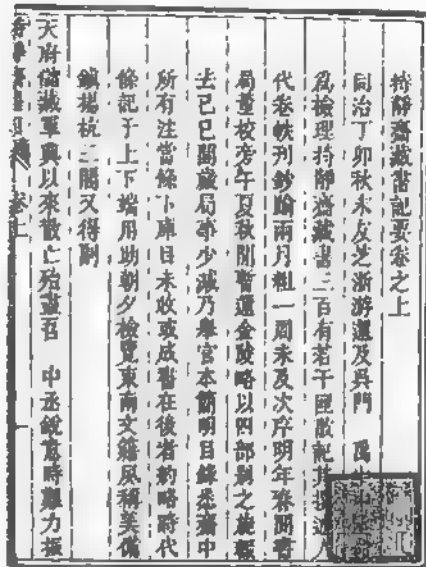 持靜齋藏書記要卷之上
同治丁卯秋末友芝浙游還及吳門　禹生
爲檢理持靜齋藏書三百有若干匣散記其撰述人
代卷帙刊鈔踰兩月粗一周未及次序明年春開書
局董校旁午夏秋間暫還金陵略以四部別之旋輟
去己巳開歲局事少減乃舉官本簡明目錄悉齋中
所有注當條下庫目未收或成書在後者約略時代
條記于上下端用助朝夕檢覽東南文籍夙稱美備
鎮揚杭三閣又得副
天府儲藏軍興以來散亡殆盡吾　中丞銳意時艱力振
卷上